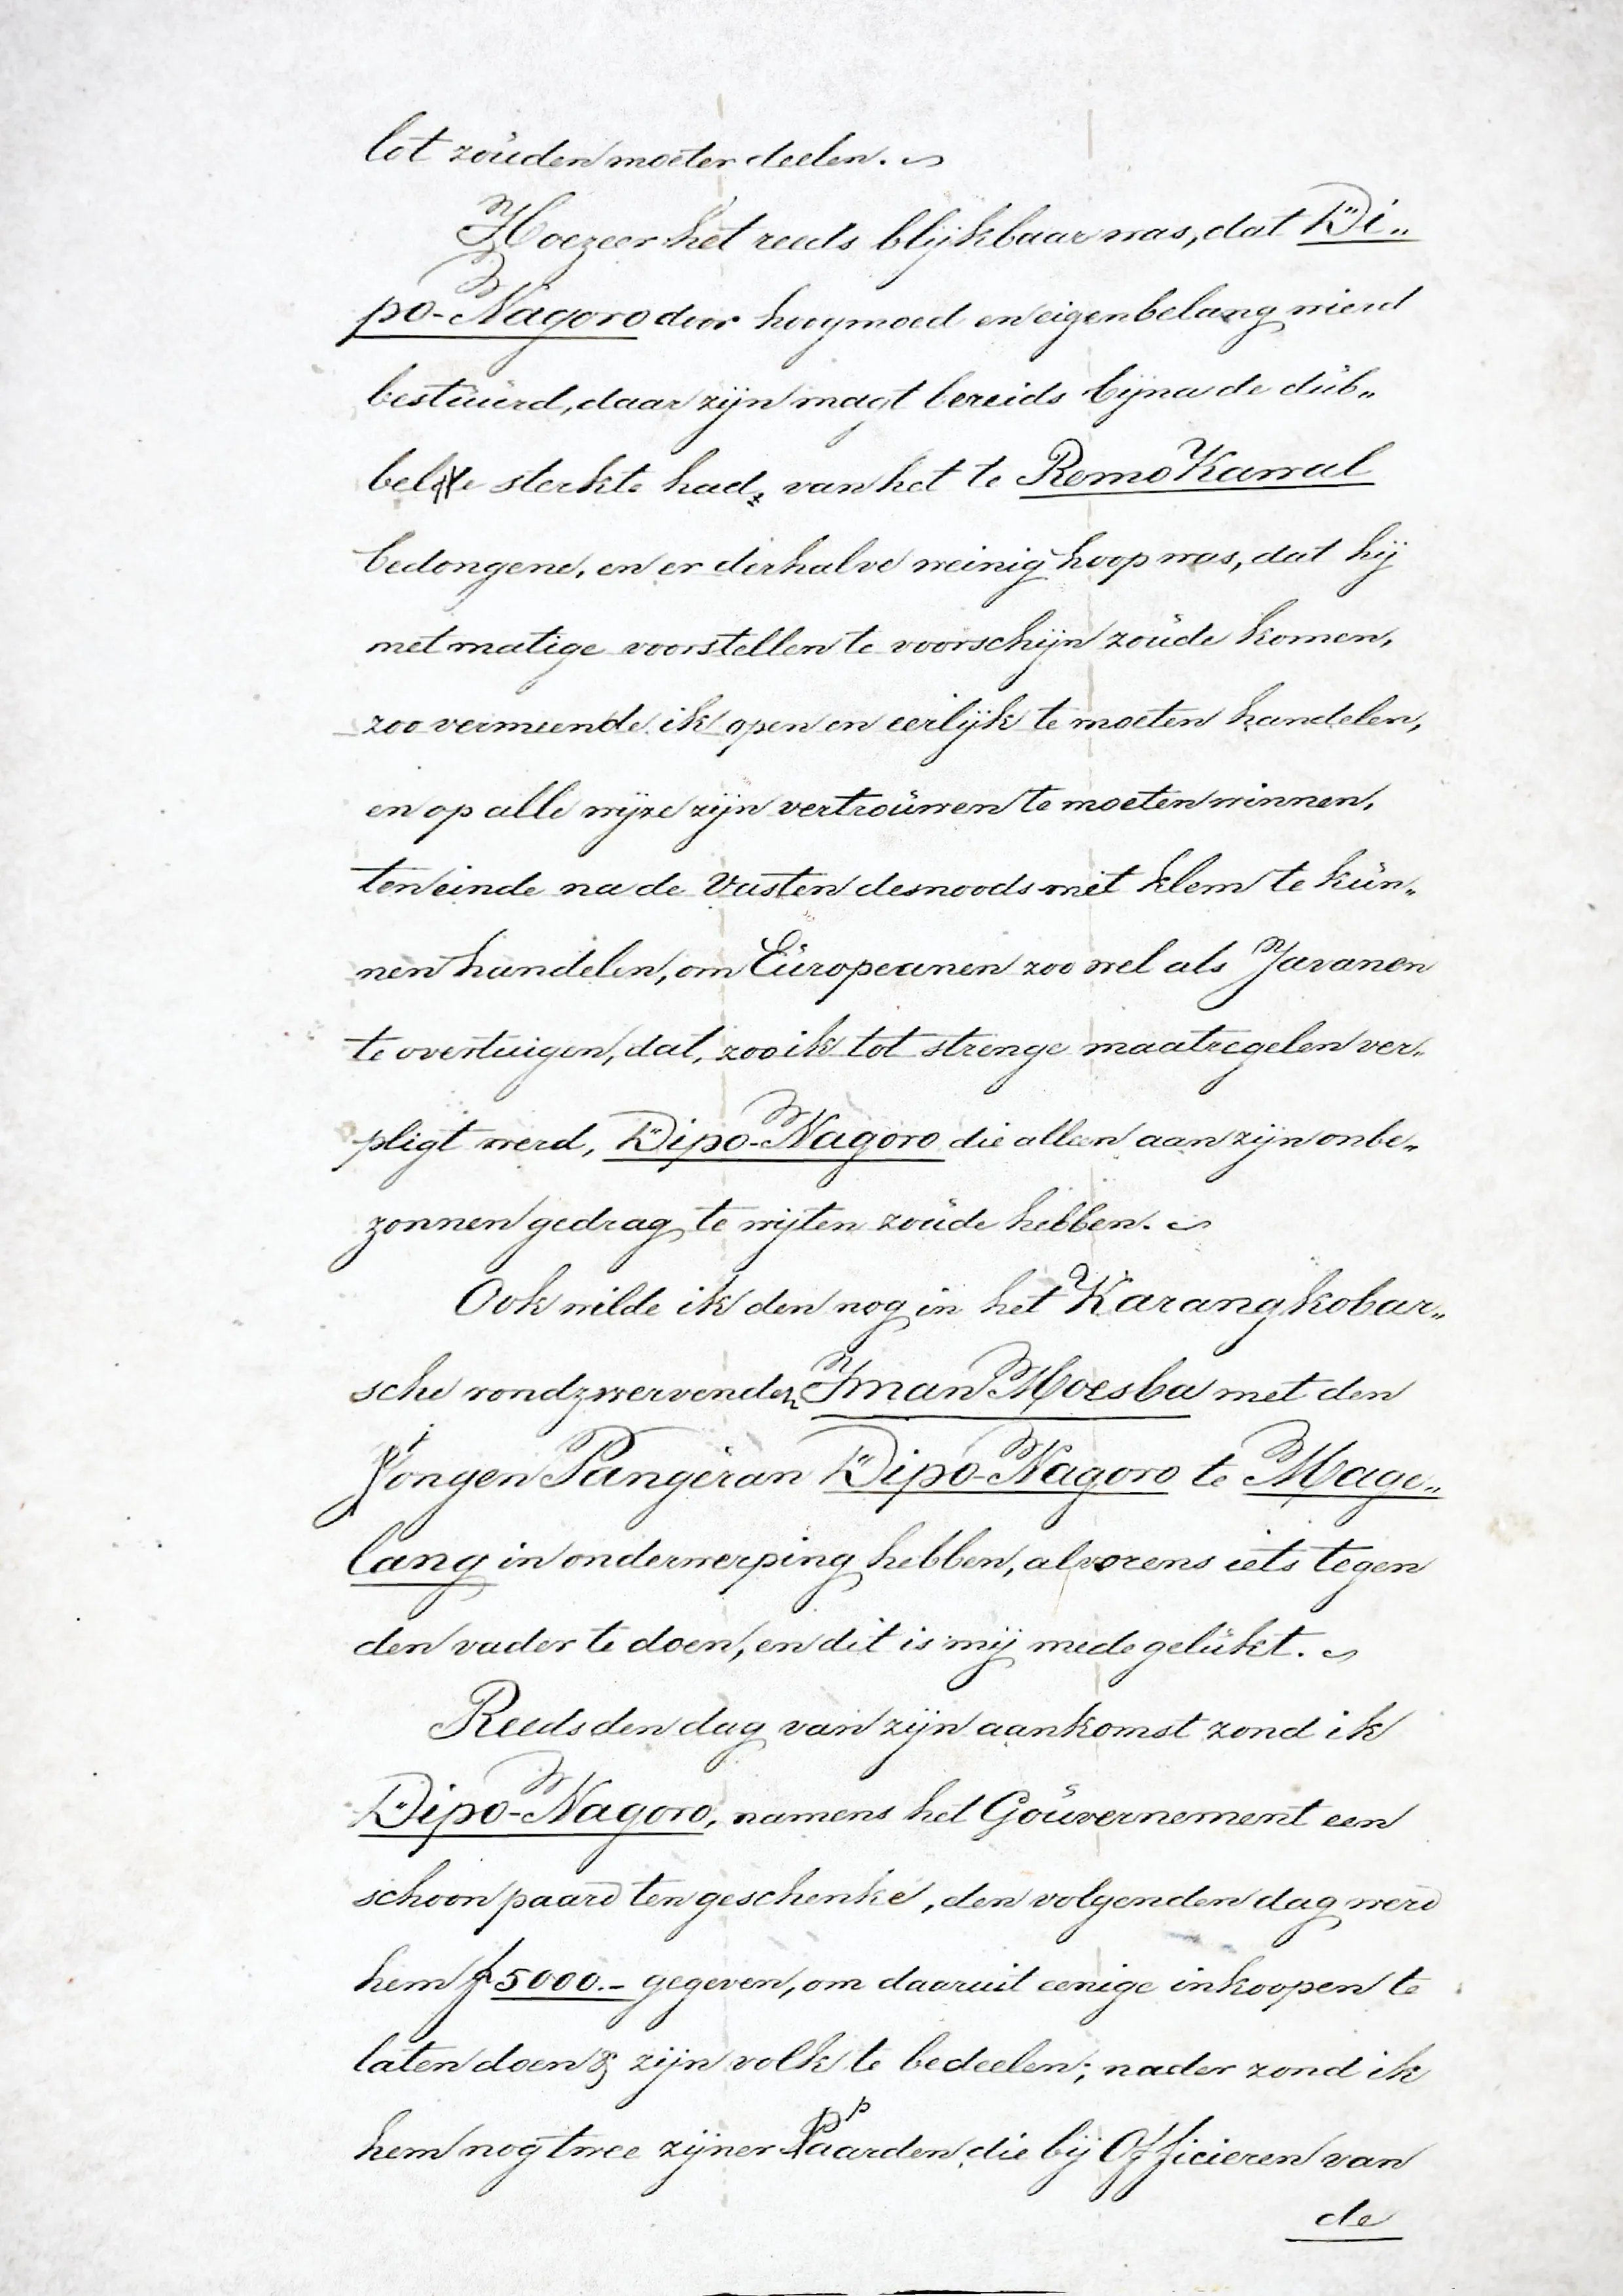 lot zouden moeten deelen.
Hoezeer het reeds blijkbaar was, dat Di„
po-Nagoro door hoogmoed en eigenbelang wierd
bestuurd, daar zijn magt bereids bijna de dub„
belde sterkte had, van het te Remo Kamal
bedongene, en er derhalve weinig hoop was, dat hij
met matige voorstellen te voorschijn zoude komen,
zoo vermeende ik open en eerlijk te moeten handelen,
en op alle wijze zijn vertrouwen te moeten winnen,
ten einde na de Vasten desnoods met klem te kun„
nen handelen, om Europeanen zoo wel als Javanen
te overtuigen, dat, zoo ik tot strenge maatregelen ver„
pligt werd, Dipo-Nagoro die alleen aan zijn onbe„
zonnen gedrag te wijten zoude hebben.
Ook wilde ik den nog in het Karangkobar„
sche rondzwervenden Iman Moesba met den
jongen Pangeran Dipo-Nagoro te Mage„
lang in onderwerping hebben, alvorens iets tegen
den vader te doen, en dit is mij mede gelukt.
Reeds den dag van zijn aankomst zond ik
Dipo-Nagoro, namens het Gouvernement een
schoon paard ten geschenke, den volgenden dag werd
hem ƒ 5000.- gegeven, om daaruit eenige inkoopen te
laten doen & zijn volk te bedeelen; nader zond ik
hem nog twee zijner paarden die bij Officieren van
de